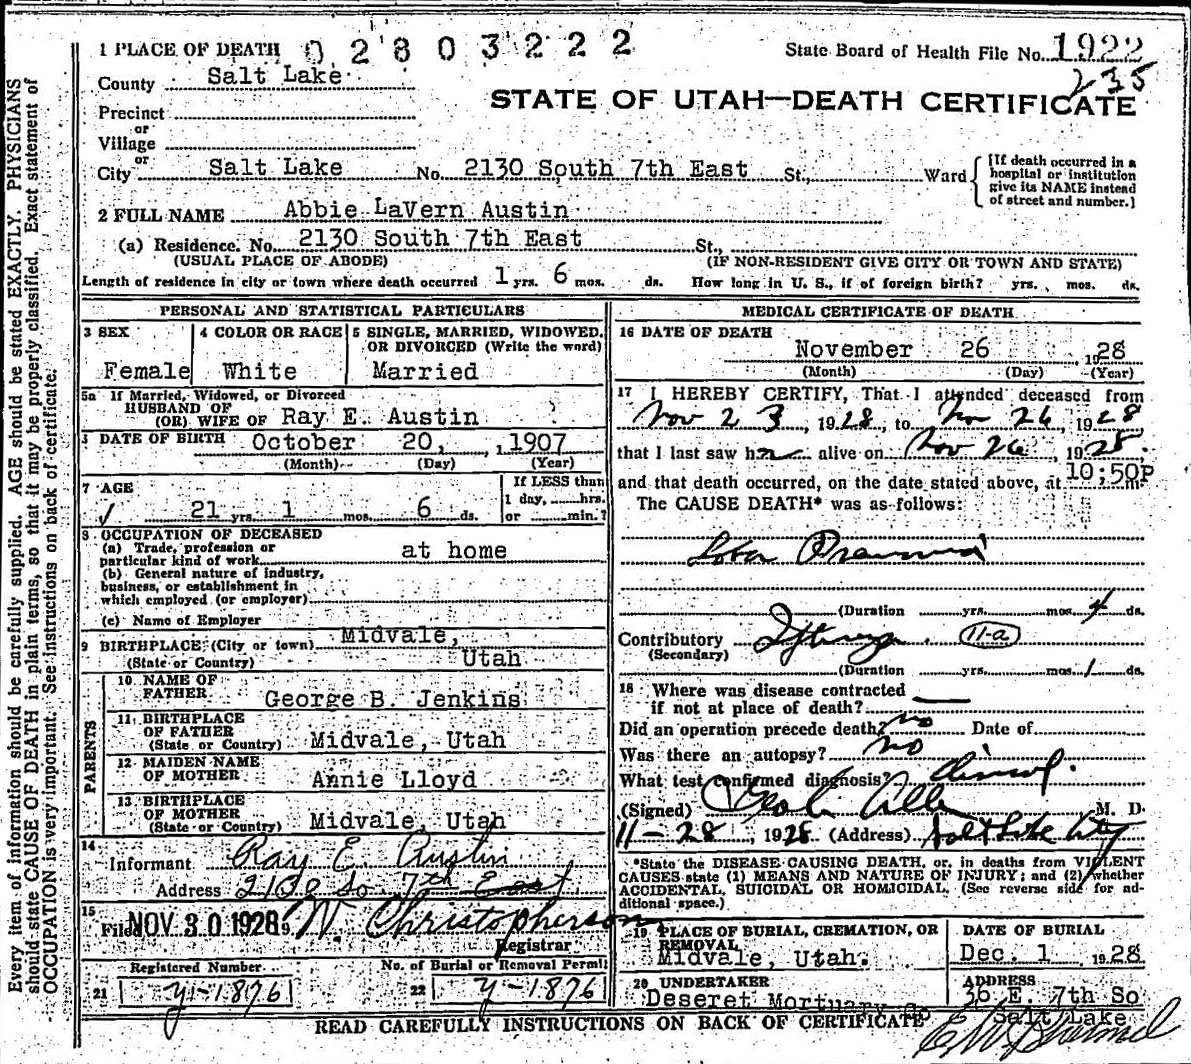 1 PLACE OF DEATH 02803222 State Board of Health File No. 1922
235
County Salt Lake
STATE OF UTAH—DEATH CERTIFICATE
Precinct
or
Village
or
City Salt Lake No. 2130 South 7th East St., Ward
[If death occurred in a
hospital or institution
give its NAME instead
of street and number.]
2 FULL NAME Abbie LaVern Austin
(a) Residence. No. 2130 South 7th East St.,
(USUAL PLACE OF ABODE) (IF NON-RESIDENT GIVE CITY OR TOWN AND STATE)
Length of residence in city or town where death occurred 1 yrs. 6 mos. ds. How long in U. S., if of foreign birth? yrs. mos. ds.
PERSONAL AND STATISTICAL PARTICULARS
3 SEX
Female
4 COLOR OR RACE
White
5 SINGLE, MARRIED, WIDOWED,
OR DIVORCED (Write the word)
Married
5a If Married, Widowed, or Divorced
HUSBAND OF
(OR) WIFE OF Ray E. Austin
DATE OF BIRTH October 20, 1907
(Month) (Day) (Year)
7 AGE
21 yrs. 1 mos. 6 ds.
If LESS than
1 day, hrs.
or min.?
8 OCCUPATION OF DECEASED
(a) Trade, profession or
particular kind of work at home
(b) General nature of industry,
business, or establishment in
which employed (or employer)
(c) Name of Employer
9 BIRTHPLACE (City or town) Midvale,
(State or Country) Utah
PARENTS
10 NAME OF
FATHER George B. Jenkins
11 BIRTHPLACE
OF FATHER
(State or Country) Midvale, Utah
12 MAIDEN NAME
OF MOTHER Annie Lloyd
13 BIRTHPLACE
OF MOTHER
(State or Country) Midvale, Utah
14
Informant Ray E. Austin
Address 2130 So 7th East
15
Filed NOV 30 1928 19 W. Christopherson
Registrar
Registered Number No. of Burial or Removal Permit
21 y-1876 22 y-1876
MEDICAL CERTIFICATE OF DEATH
16 DATE OF DEATH
November 26 1928
(Month) (Day) (Year)
17 I HEREBY CERTIFY, That I attended deceased from
Nov 23, 1928, to Nov 26, 1928
that I last saw her alive on Nov 26, 1928,
and that death occurred, on the date stated above, at 10:50P m
The CAUSE DEATH* was as follows:
Lobar Pneumonia
(Duration yrs. mos. 4 ds.
Contributory 11-a
(Secondary)
(Duration yrs. mos. 1 ds.
18 Where was disease contracted
if not at place of death?
Did an operation precede death? no Date of
Was there an autopsy? no
What test confirmed diagnosis? Clinical.
(Signed) M. D.
11-28, 1928 (Address) Salt Lake City
*State the DISEASE CAUSING DEATH, or, in deaths from VIOLENT
CAUSES state (1) MEANS AND NATURE OF INJURY; and (2) whether
ACCIDENTAL, SUICIDAL OR HOMICIDAL. (See reverse side for ad-
ditional space.)
19 PLACE OF BURIAL, CREMATION, OR
REMOVAL
Midvale, Utah.
DATE OF BURIAL
Dec. 1 1928
20 UNDERTAKER
Deseret Mortuary Co
ADDRESS
36 E. 7th So
Salt Lake
READ CAREFULLY INSTRUCTIONS ON BACK OF CERTIFICATE
Every item of information should be carefully supplied. AGE should be stated EXACTLY. PHYSICIANS
should state CAUSE OF DEATH in plain terms, so that it may be properly classified. Exact statement of
OCCUPATION is very important. See instructions on back of certificate.